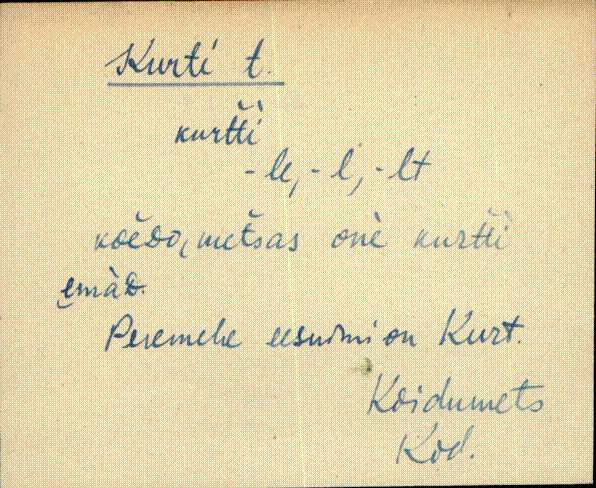 Kurti t.
kurt̆t̆i
-le, -l, -lt
metšas onè kurt̆t̆i
Peremehe eesnimi on Kurt.
Koidumets
Kod.